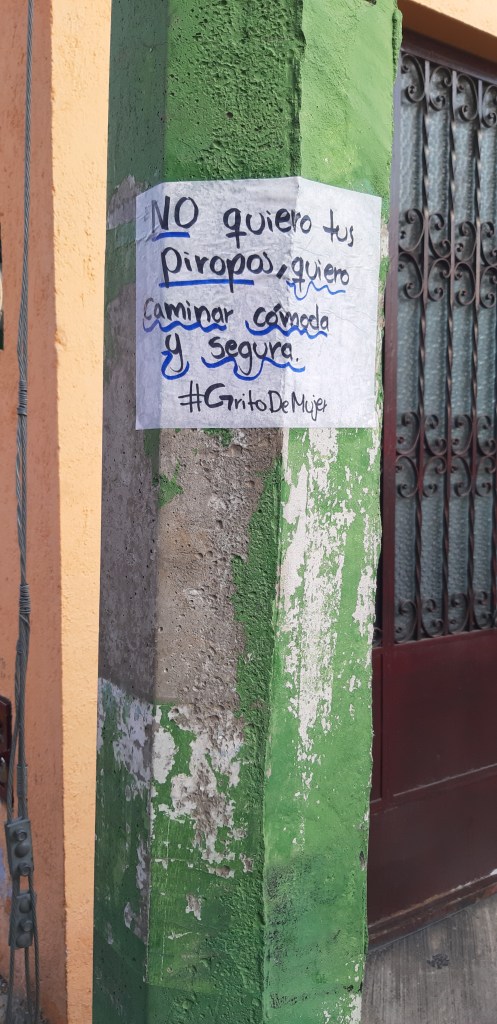 NO quiero tus
piropos, quiero
caminar cómoda
y segura.
#GritoDeMujer